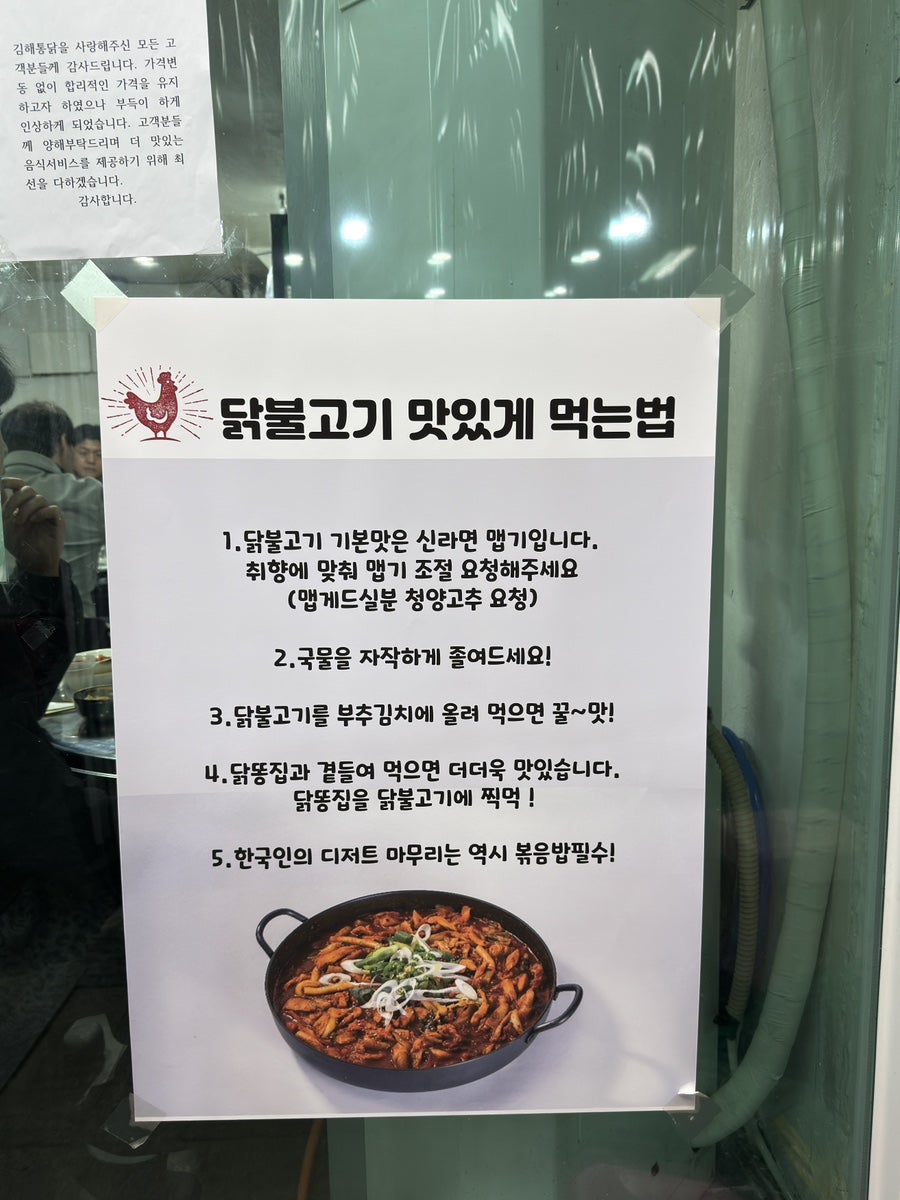 김해통닭을 사랑해주신 모든 고
객분들께 감사드립니다. 가격변
동 없이 합리적인 가격을 유지
하고자 하였으나 부득이 하게
인상하게 되었습니다. 고객분들
께 양해부탁드리며 더 맛있는
음식서비스를 제공하기 위해 최
선을 다하겠습니다.
감사합니다.
닭불고기 맛있게 먹는법
1.닭불고기 기본맛은 신라면 맵기입니다.
취향에 맞춰 맵기 조절 요청해주세요
(맵게드실분 청양고추 요청)
2.국물을 자작하게 졸여드세요!
3.닭불고기를 부추김치에 올려 먹으면 꿀~맛!
4.닭똥집과 곁들여 먹으면 더더욱 맛있습니다.
닭똥집을 닭불고기에 찍먹 !
5.한국인의 디저트 마무리는 역시 볶음밥필수!